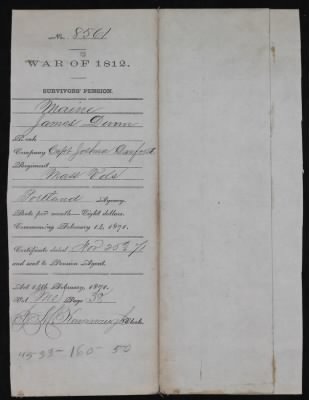 No. 8561
WAR OF 1812.
SURVIVORS' PENSION.
Maine
James Dunn
Rank
Company Capt Joshua Danford
Regiment
Mass Vols
Portland Agency.
Rate per month—Eight dollars.
Commencing February 14, 1871.
Certificate dated Nov 25th 71
and sent to Pension Agent.
Act 14th February, 1871.
Vol. Me Page 38
Clerk.
4533- 160- 50